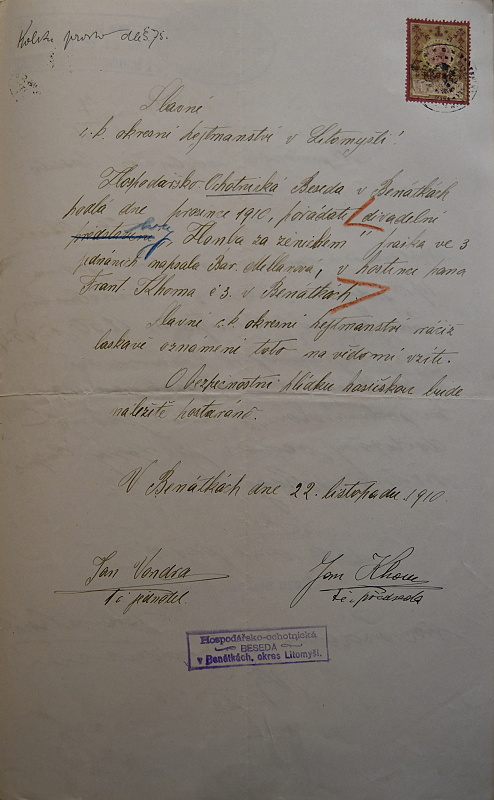 Slavné
c. k. okresní hejtmanství v Litomyšli!
Hospodářsko-Ochotnická Beseda v Benátkách
podlá dne prosince 1910, pořádati divadelní
představení hry „Honba za ženichem" fraška ve 3
jednáních napsala Bar. Mellanová, v hostinci pana
Frant. Khoma č 3. v Benátkách.
Slavné c. k. okresní hejtmanství ráčiž
laskavě oznámení toto na vědomí vzíti.
O bezpečnostní hlídku hasičskou bude
náležitě postaráno.
V Benátkách dne 22. listopadu 1910
Jan Vondra
t. č. jednatel.
Jan
t. č. předseda
Hospodářsko-ochotnická
BESEDA
v Benátkách, okres Litomyšl.